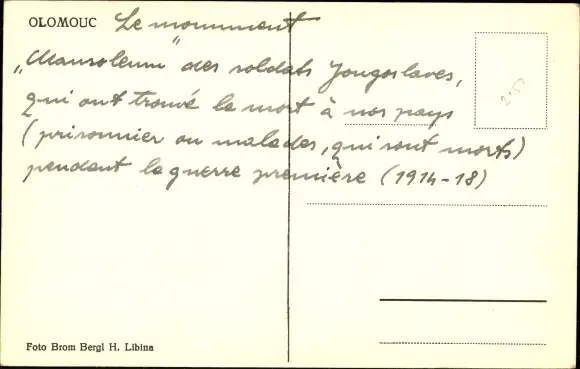 OLOMOUC Le monument
„Mausoleum" des soldats Yougoslaves,
qui ont trouvé la mort à nos pays
(prisonnier ou malades, qui sont morts)
pendant la guerre première (1914-18)
Foto Brom Bergl H. Libina